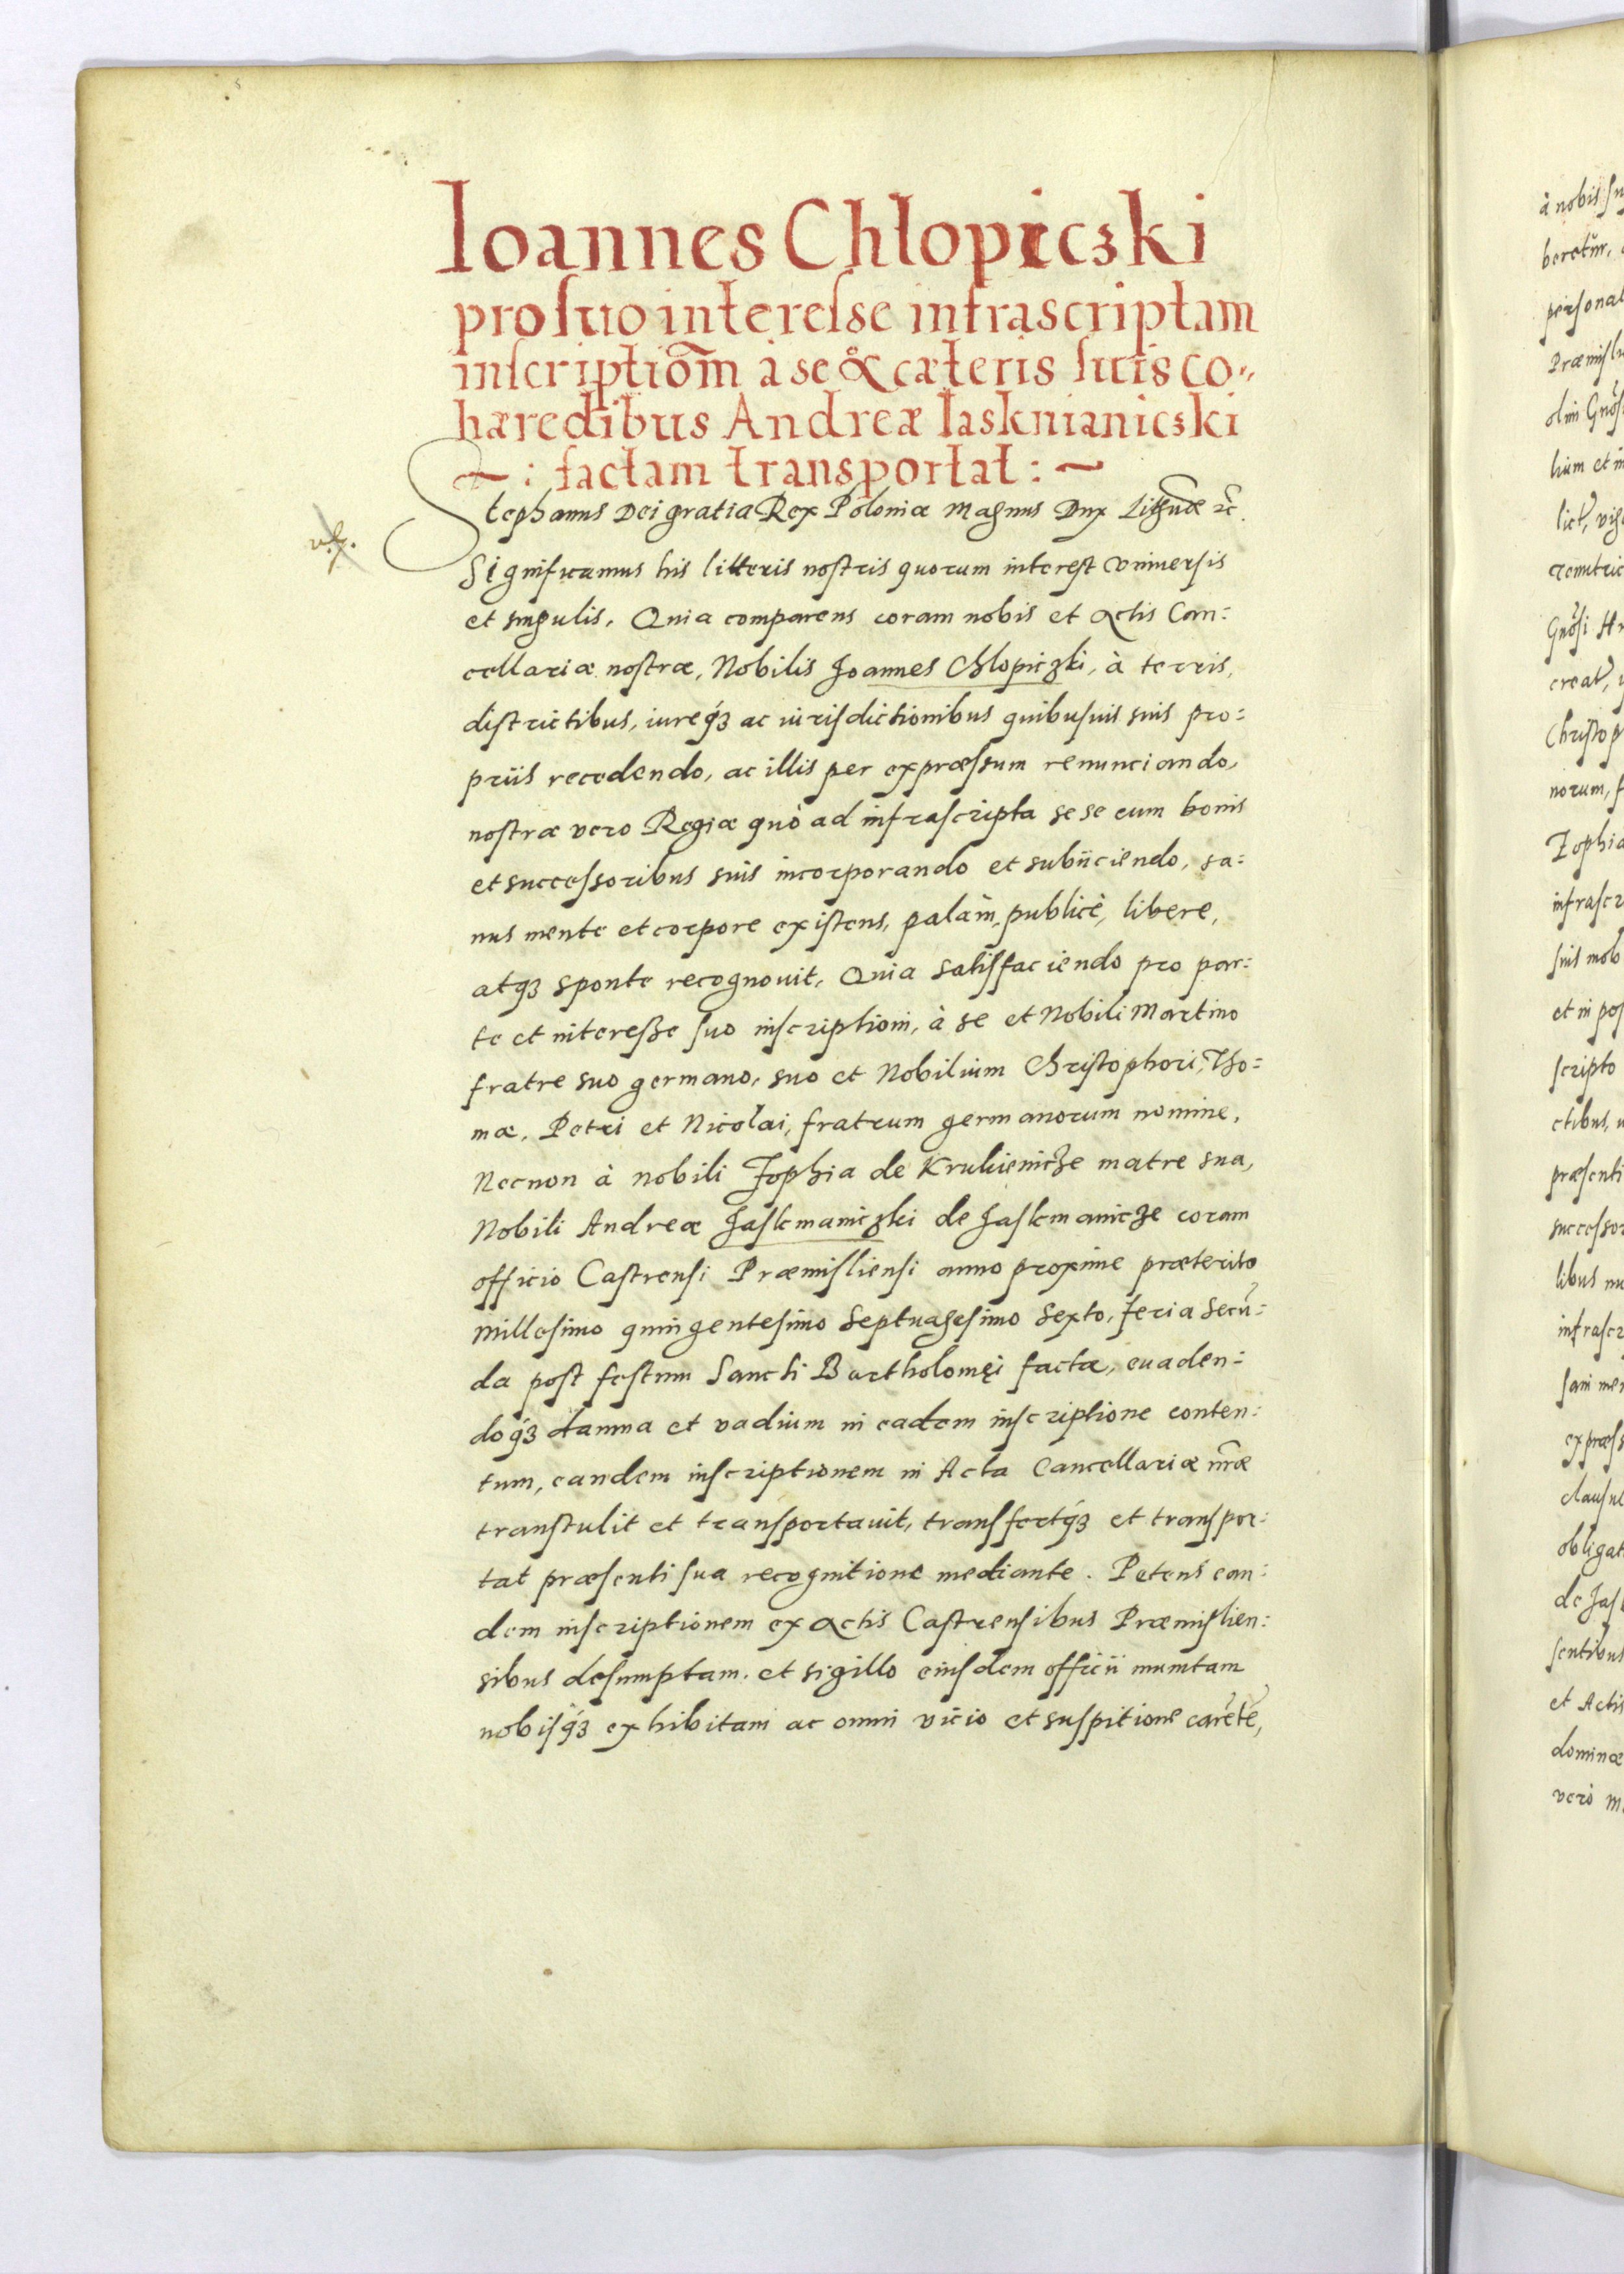 Ioannes Chlopiczki
pro suo interesse infrascriptam
inscriptiõm à se & cæteris suis co„
hæredibus Andreæ Iaskmaniczki
~ : factam transportat : ~
Stephanus Dei gratia Rex Poloniæ Magnus Dux Lithuãe ꝛc̃.
Significamus his litteris nostris quorum interest vniuersis
et singulis, Quia comparens coram nobis et Actis Can:
cellariæ nostræ, Nobilis Joannes Chlopiczki, à terris,
districtibus, iureqꝫ ac iurisdictionibus quibusuis suis pro:
priis recedendo, ac illis per expræssum renunciando,
nostræ vero Regiæ quò ad infrascripta se se cum bonis
et successoribus suis incorporando et subiiciendo, sa:
nus mente et corpore existens, palàm, publicè, libere,
atqꝫ sponte recognouit, Quia satisfaciendo pro par:
te et interesse suo inscriptioni, à se et Nobili Martino
fratre suo germano, suo et Nobilium Christophori, Tho:
mæ, Petri et Nicolai, fratrum germanorum nomine,
Necnon à nobili Zophia de Krukienicze matre sua,
Nobili Andreæ Jaskmaniczki de Jaskmanicze coram
officio Castrensi Præmisliensi anno proxime præterito
Millesimo quingentesimo Septuagesimo Sexto, feria Secũ:
da post festum Sancti Bartholomęi factæ, euaden:
doqꝫ damna et vadium in eadem inscriptione conten:
tum, eandem inscriptionem in Acta Cancellariæ nr̃æ
transtulit et transportauit, transfertqꝫ et transpor:
tat præsenti sua recognitione mediante. Petens ean:
dem inscriptionem ex Actis Castrensibus Præmislien:
sibus desumptam, et sigillo eiusdem officii munitam
nobisqꝫ exhibitam ac omni vicio et suspitione carẽtẽ,
à nobis
personal
olim
lium et in
creat,
norum,
Zophia
infrascr
suis mob
et in pos
scripto
ctibus,
præsenti
successor
infrascr
expræss
obligat
de Jas
sentibus
et Actis
dominæ
verò